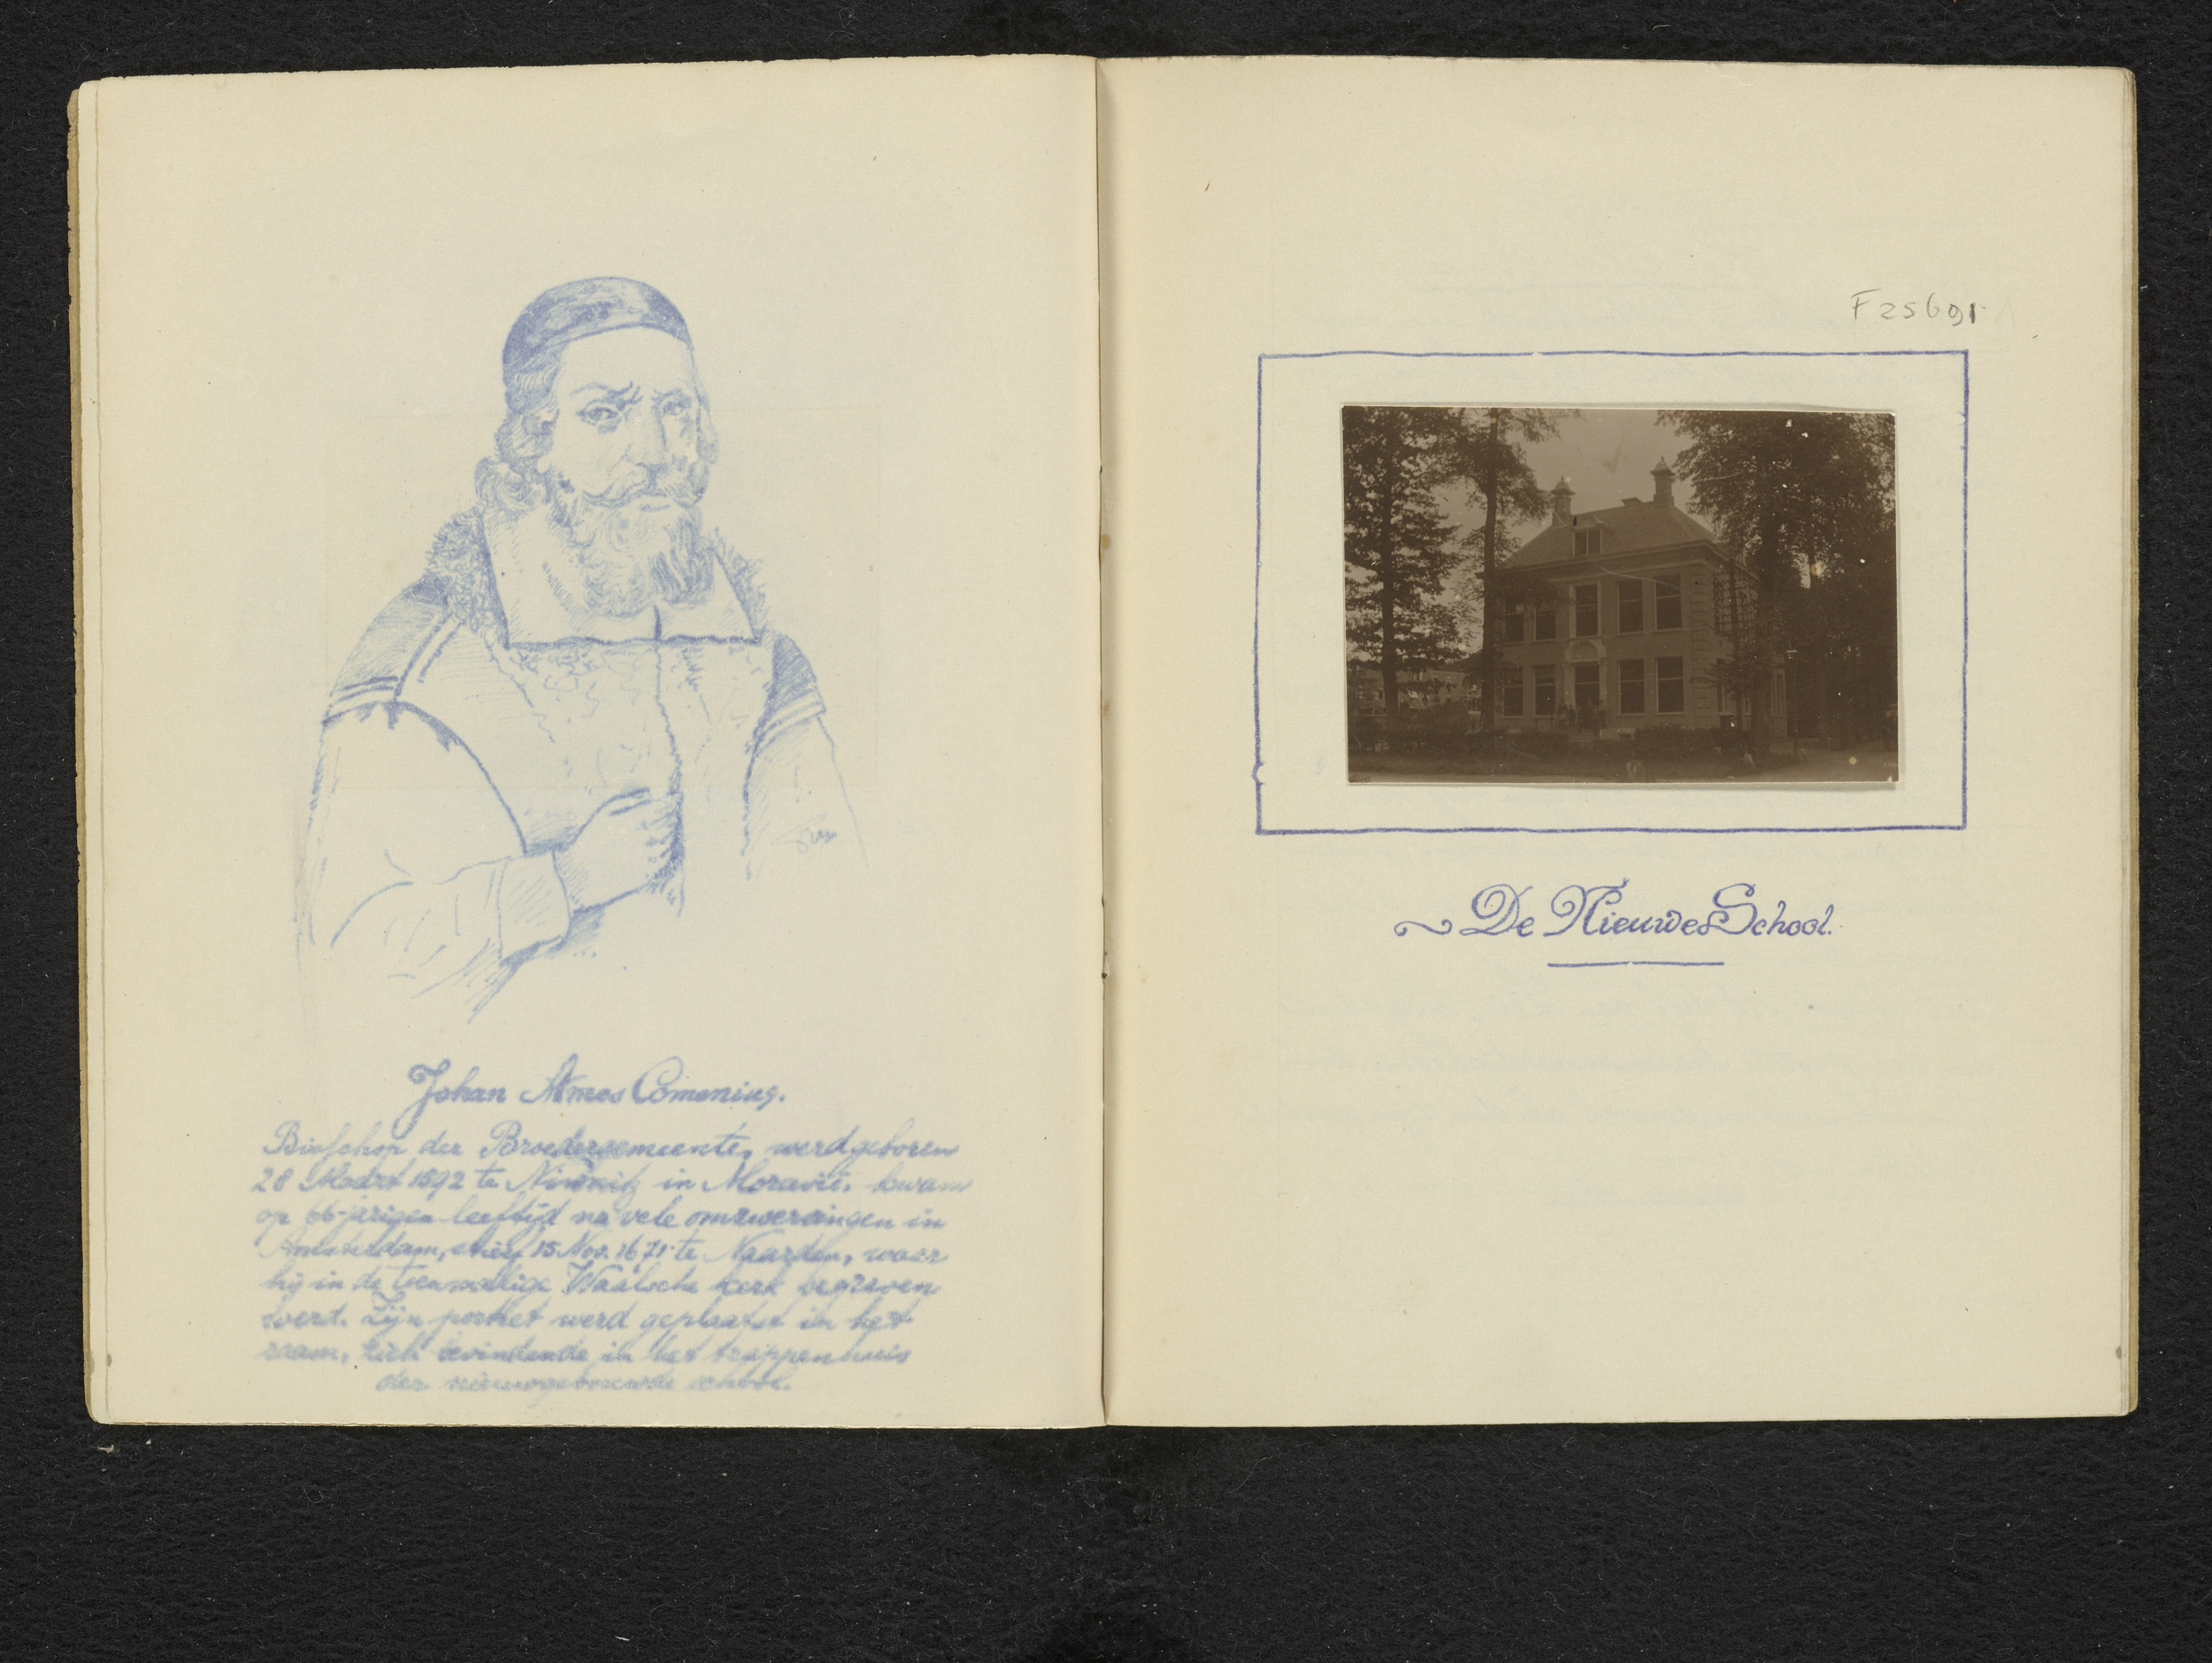 Johan Amos Comenius.
Bisschop der Broedergemeente, werd geboren
28 Maart 1592 te in Moravië, kwam
op 66-jarigen leeftijd na vele omzwervingen in
Amsterdam, stierf 15 Nov. 1671 te Naarden, waar
hij in de toenmalige Waalsche kerk begraven
werd. Zijn portret werd geplaatst in het
raam, zich bevindende in het trappenhuis
der nieuwgebouwde school.
F 25691
De Nieuwe School.